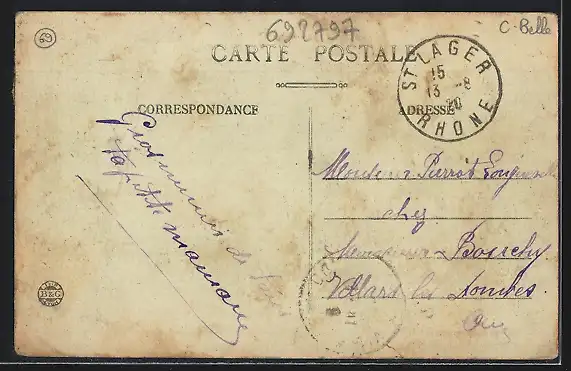 69
692797
C-Belle
CARTE POSTALE
CORRESPONDANCE
ADRESSE
ST LAGER
15
13 -8
20
RHONE
Gros mimis de
ta petite maman
Monsieur Pierrot
chez
Monsieur
Villars les Dombes
Ain
B&G